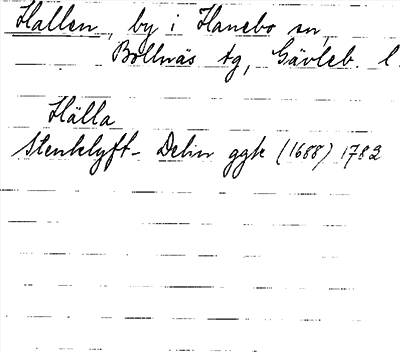 Hallen, by i Hanebo sn,
Bollnäs tg, Gävleb. l.
Hälla
Stenklyft- Delin ggk (1688) 1782